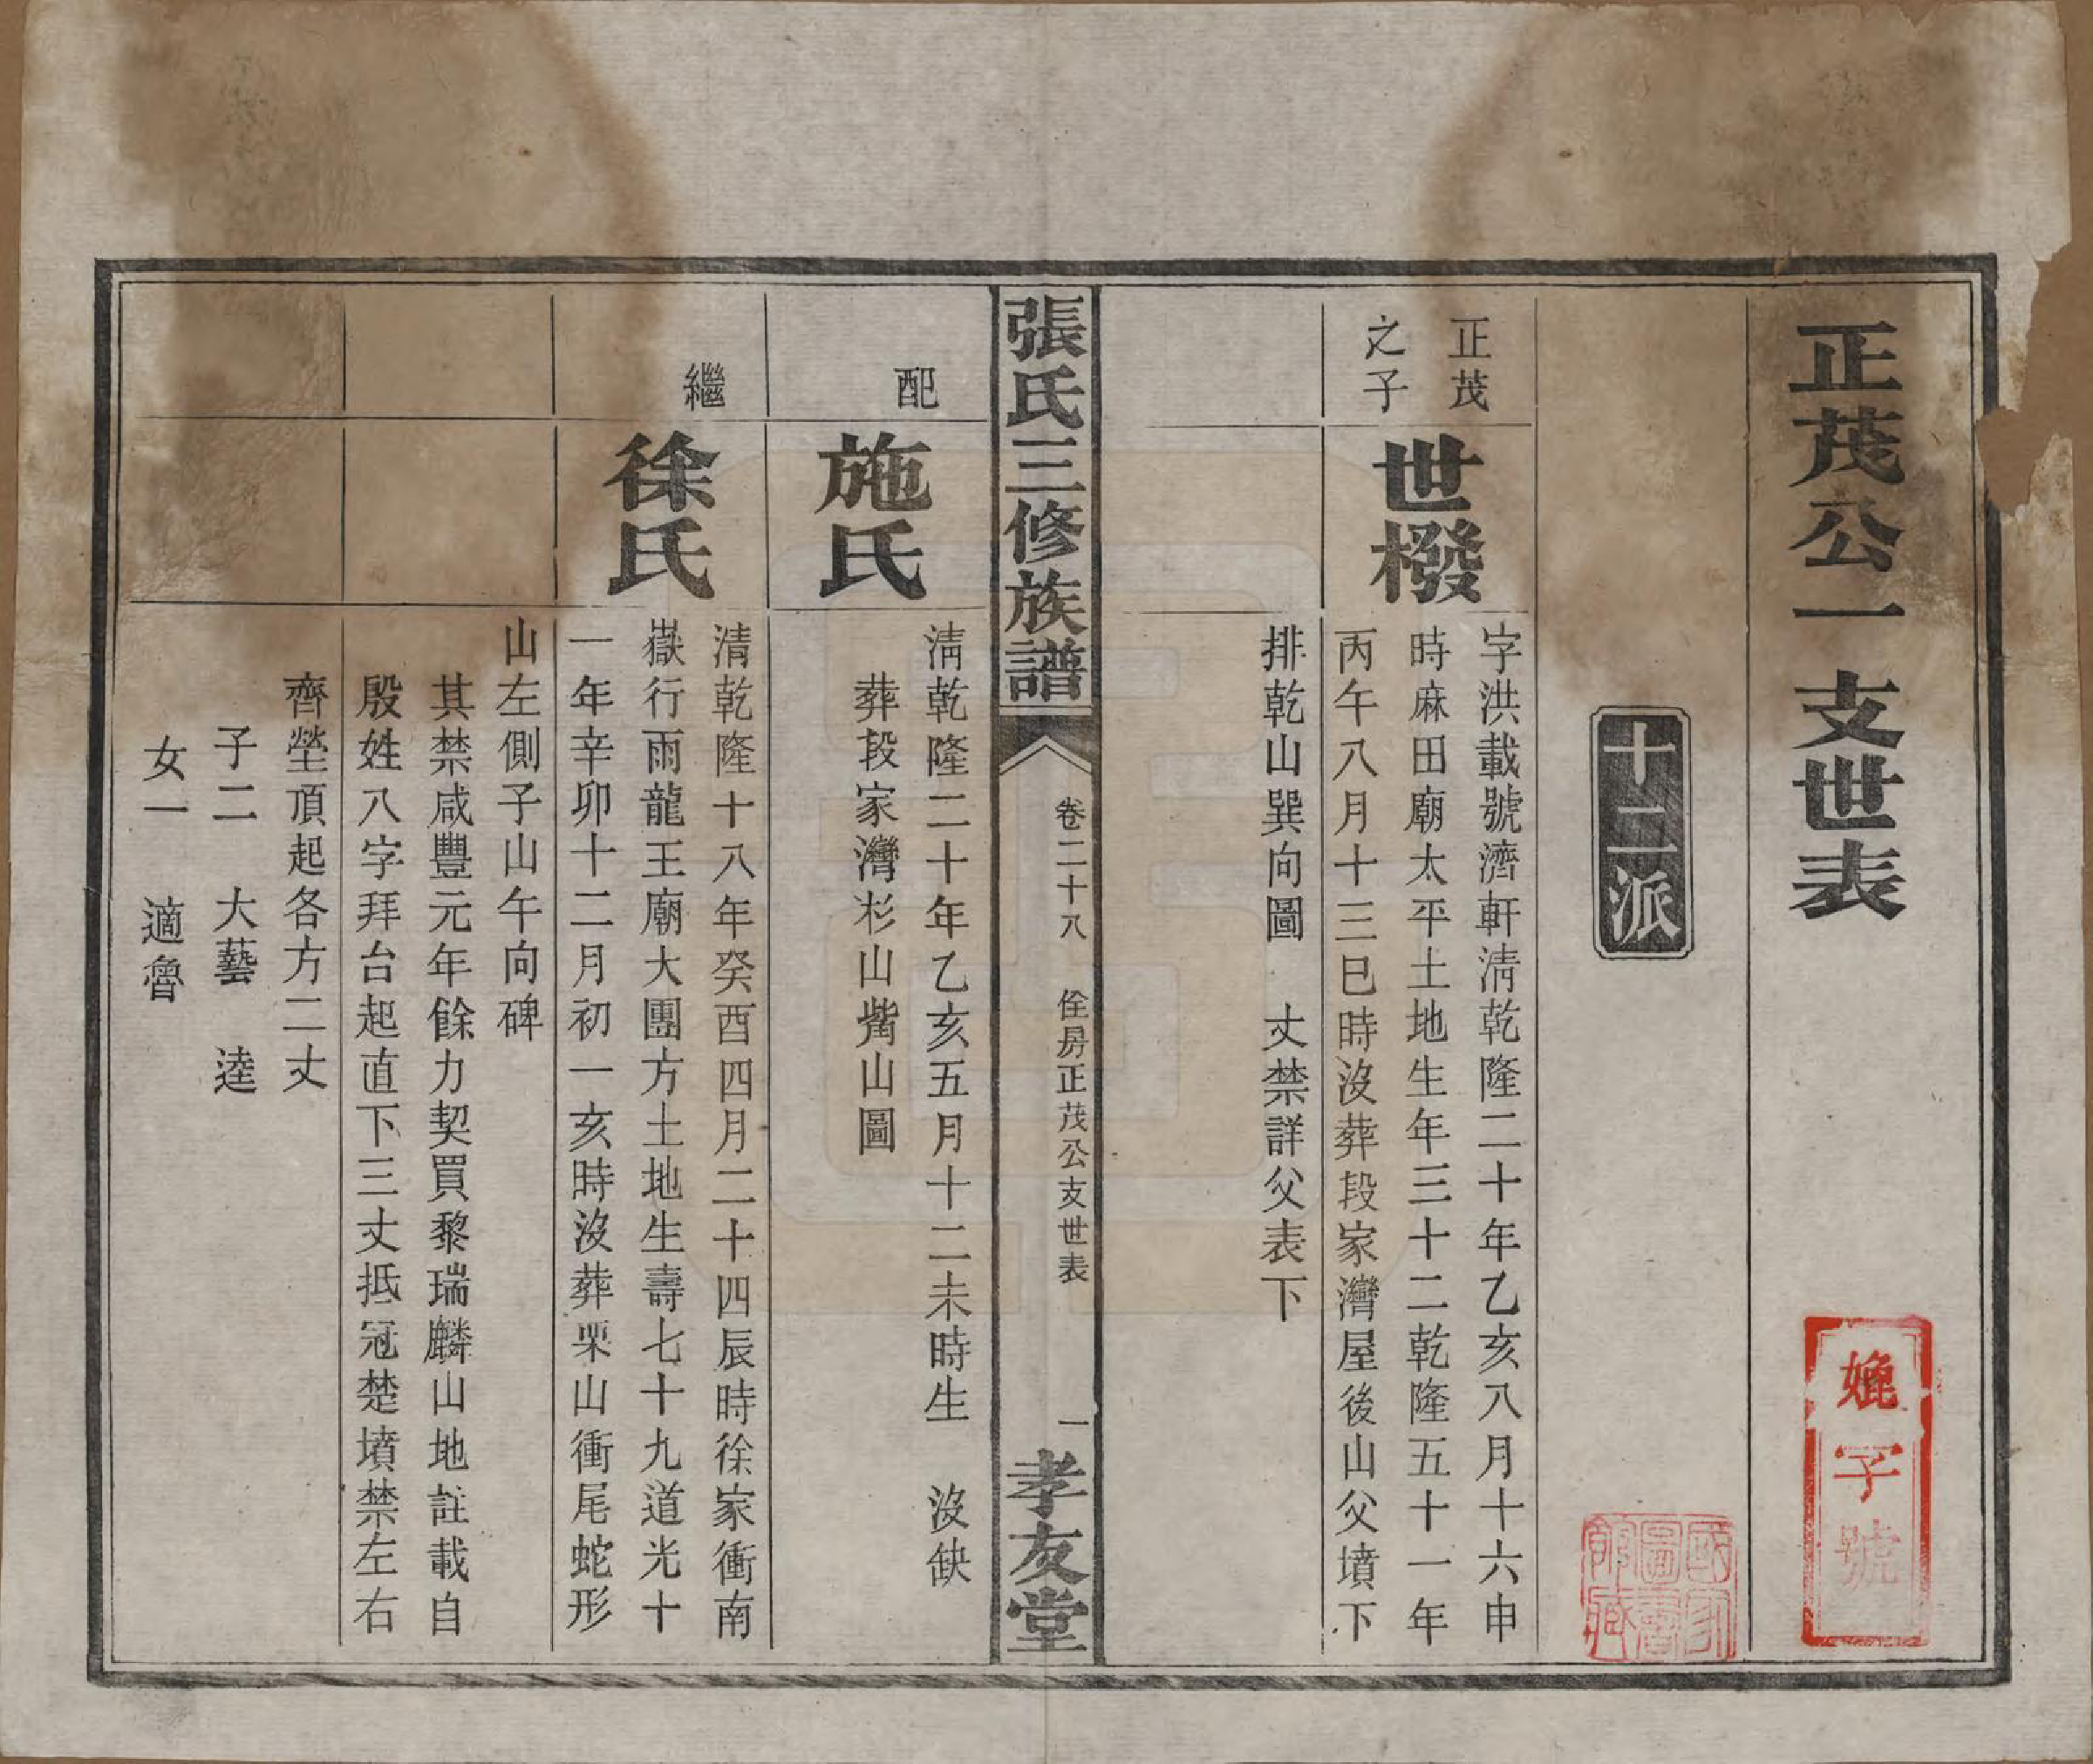 正茂公一支世表
十二派
正茂
之子
世橃
字洪載號濟軒淸乾隆二十年乙亥八月十六申
時麻田廟太平土地生年三十二乾隆五十一年
丙午八月十三巳時沒葬段家灣屋後山父墳下
排乾山巽向圖 丈禁詳父表下
張氏三修族譜
卷二十八 佺房正茂公支世表
一
孝友堂
配
施氏
淸乾隆二十年乙亥五月十二未時生 沒缺
葬段家灣杉山觜山圖
繼
徐氏
清乾隆十八年癸酉四月二十四辰時徐家衝南
嶽行雨龍王廟大團方土地生壽七十九道光十
一年辛卯十二月初一亥時沒葬栗山衝尾蛇形
山左側子山午向碑
其禁咸豐元年餘力契買黎瑞麟山地註載自
殷姓八字拜台起直下三丈抵冠楚墳禁左右
齊塋頂起各方二丈
子二 大藝 逵
女一 適魯
子號
國家圖書館藏